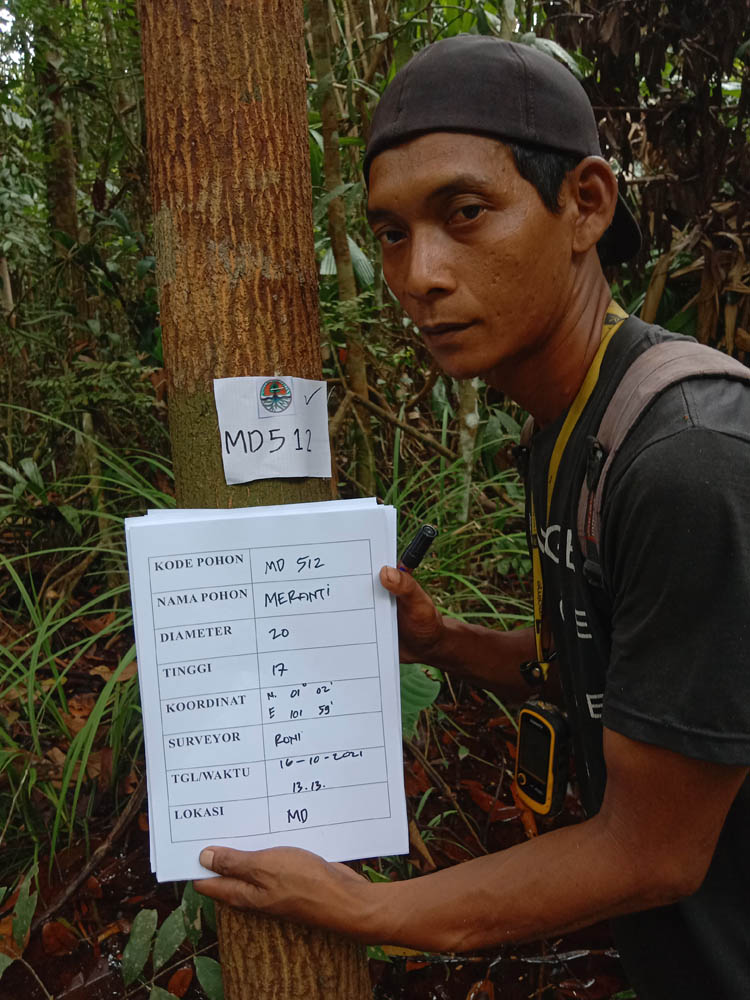 MD512
KODE POHON MD 512
NAMA POHON MERANTI
DIAMETER 20
TINGGI 17
KOORDINAT N. 01° 02'
E 101 59'
SURVEYOR RONI
TGL/WAKTU 16-10-2021
13.13.
LOKASI MD